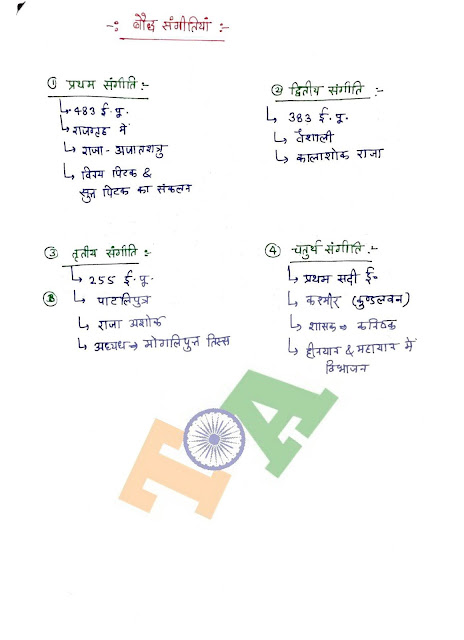 -: बौद्ध संगीतियां :-
① प्रथम संगीति :-
↳ 483 ई.पू.
↳ राजगृह में
↳ राजा - अजातशत्रु
↳ विनय पिटक &
सुत्त पिटक का संकलन
② द्वितीय संगीति :-
↳ 383 ई.पू.
↳ वैशाली
↳ कालाशोक राजा
③ तृतीय संगीति :-
↳ 255 ई.पू.
Ⓑ ↳ पाटलिपुत्र
↳ राजा अशोक
↳ अध्यक्ष → मोगलिपुत्त तिस्स
④ चतुर्थ संगीति :-
↳ प्रथम सदी ई०
↳ कश्मीर (कुण्डलवन)
↳ शासक → कनिष्क
↳ हीनयान & महायान में
विभाजन
TA